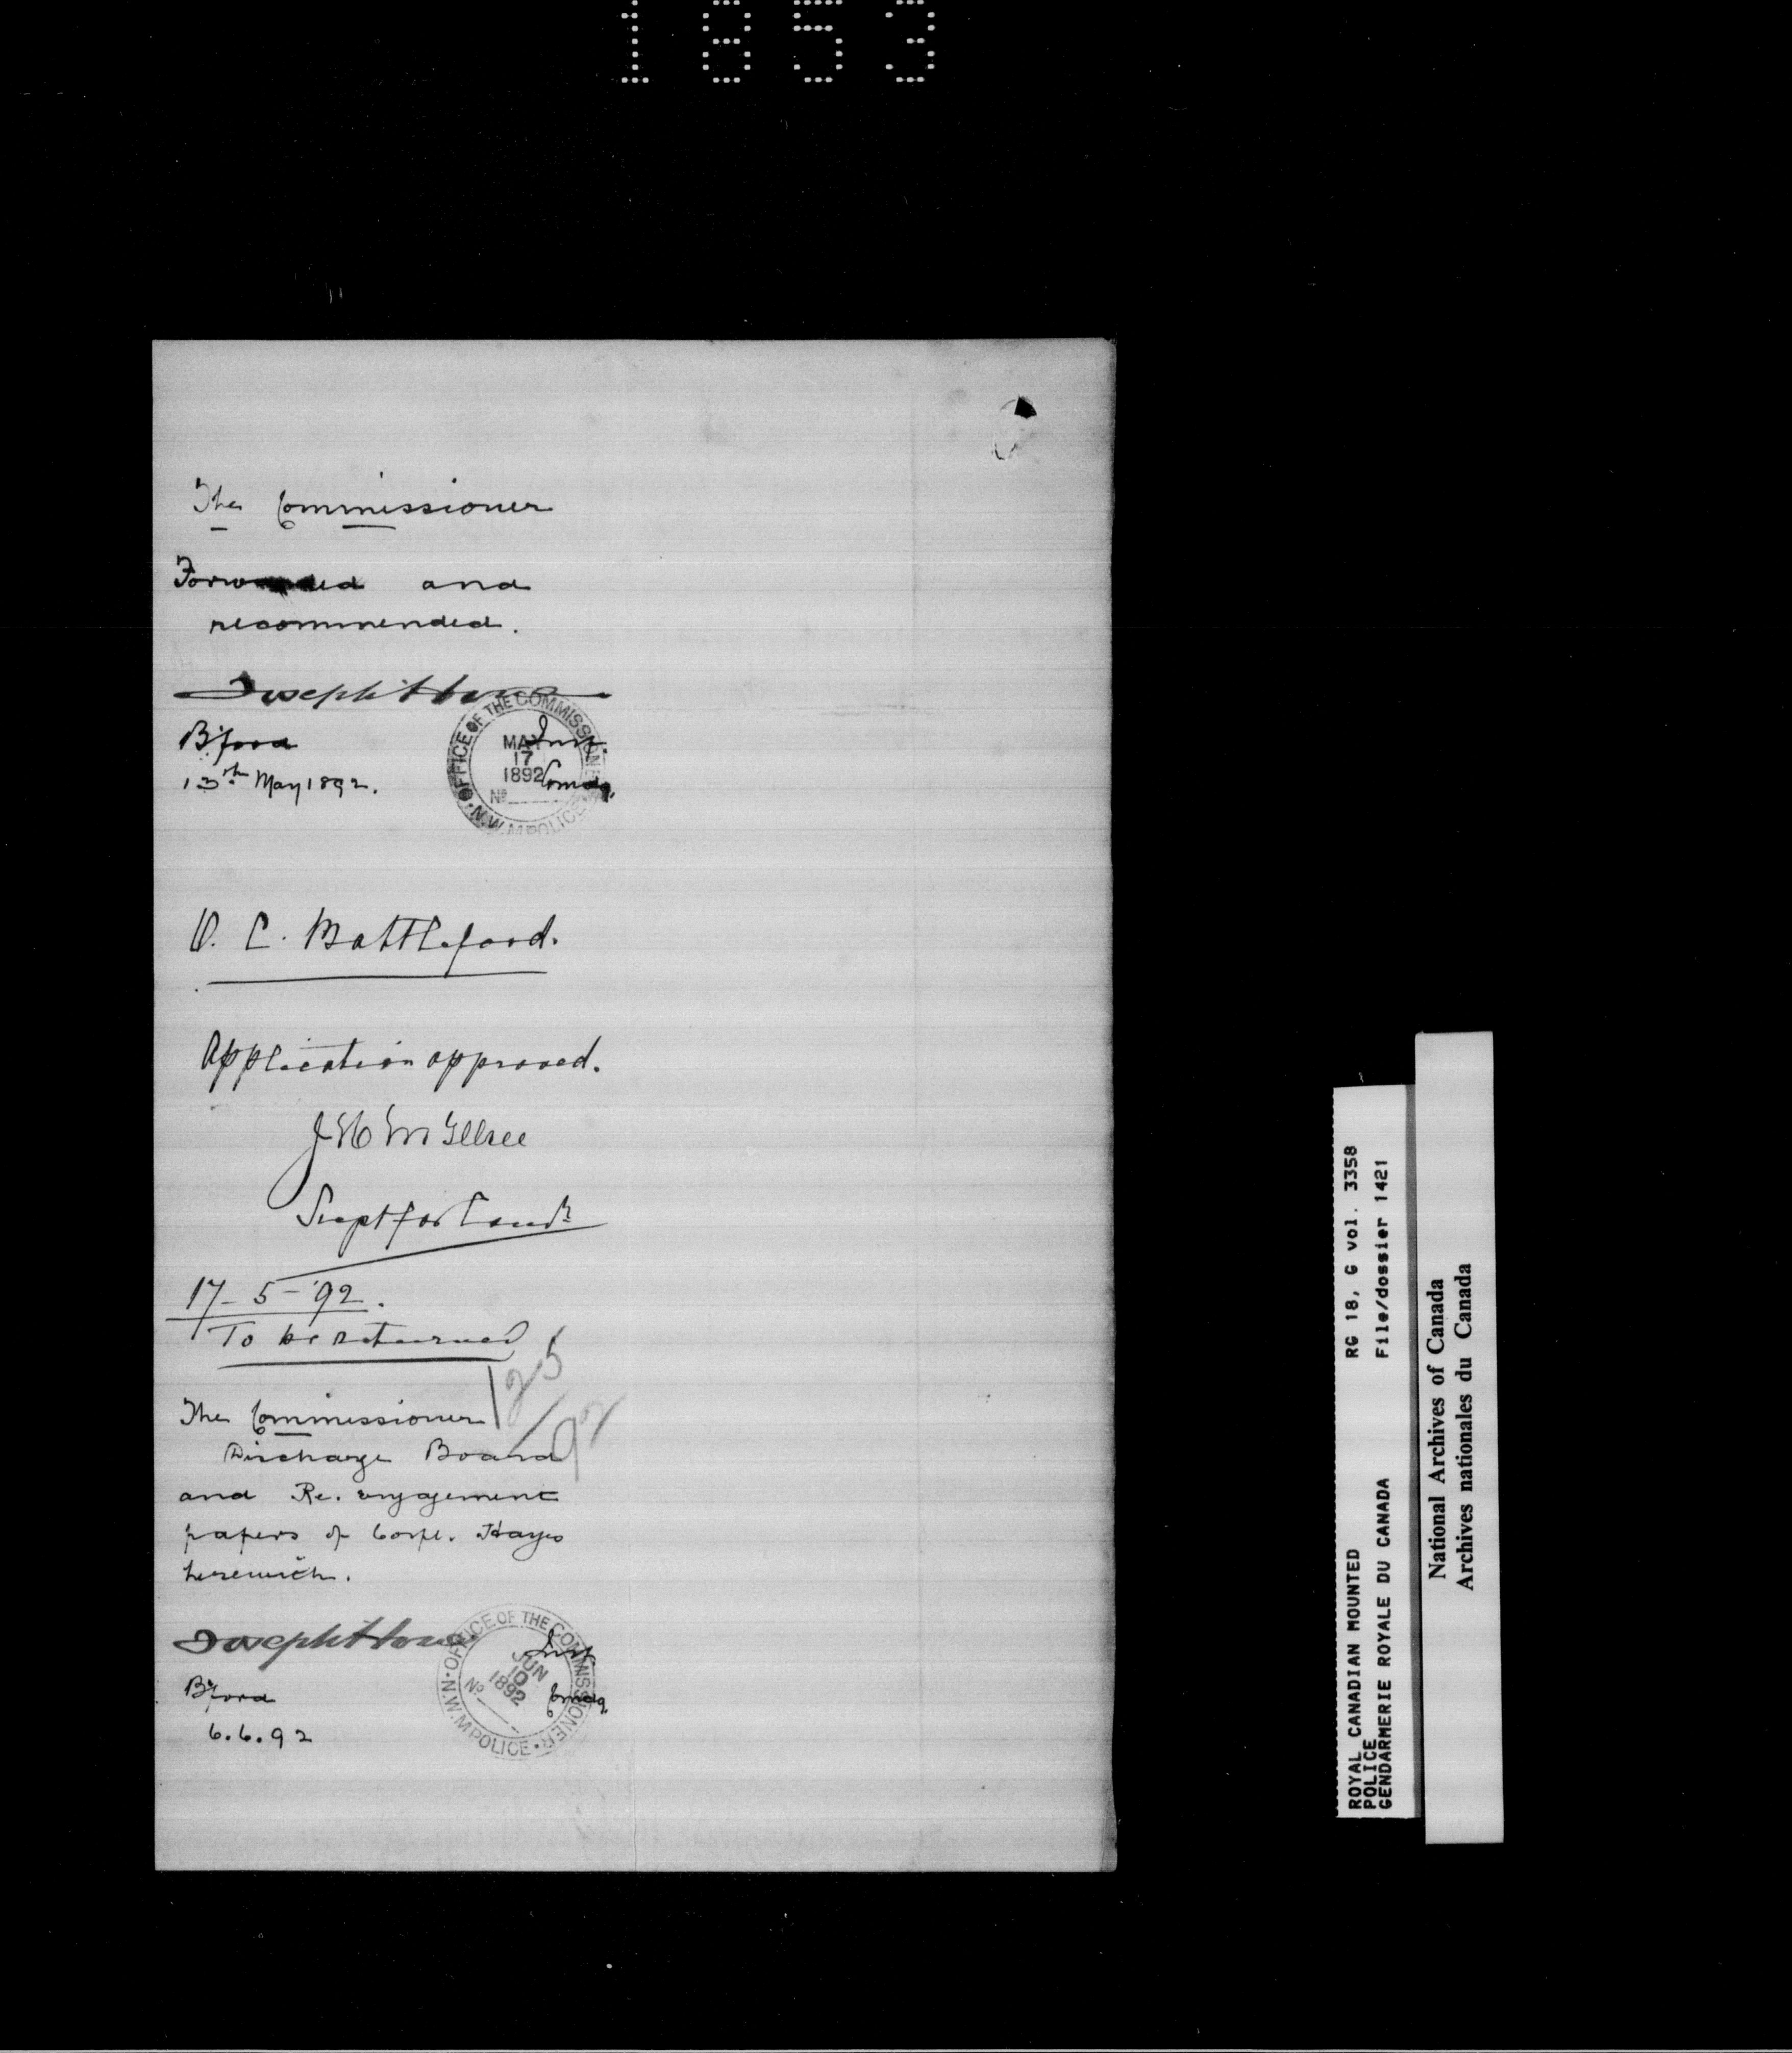 1853
The Commissioner
Forwarded and
recommended.
Joseph Howe
B'ford Inst.
13th May 1892. Comdg.
OFFICE OF THE COMMISSIONER
MAY
17
1892
No
N.W.M POLICE
O. C. Battleford.
Application approved.
J H McIllree
Supt for Comdr
17-5-'92.
To be returned
125/92
The Commissioner
Discharge Board
and Re. engagement
papers of Corpl. Hayes
herewith.
Joseph Howe
B'ford Comdg.
6.6.92
OFFICE OF THE COMMISSIONER
JUN
10
1892
No
N.W.M POLICE
ROYAL CANADIAN MOUNTED
POLICE
GENDARMERIE ROYALE DU CANADA
RG 18, G vol. 3358
File/dossier 1421
National Archives of Canada
Archives nationales du Canada